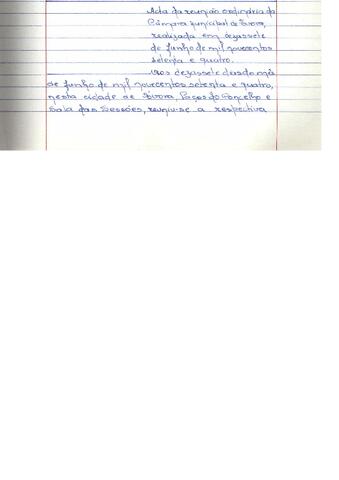 Acta da reunião ordinária da
Câmara Municipal de Évora,
realizada em dezassete
de Junho de mil novecentos
setenta e quatro.
Aos dezassete dias do mês
de Junho de mil novecentos setenta e quatro,
nesta cidade de Évora, Paços do Concelho e
Sala das Sessões, reuniu-se a respectiva